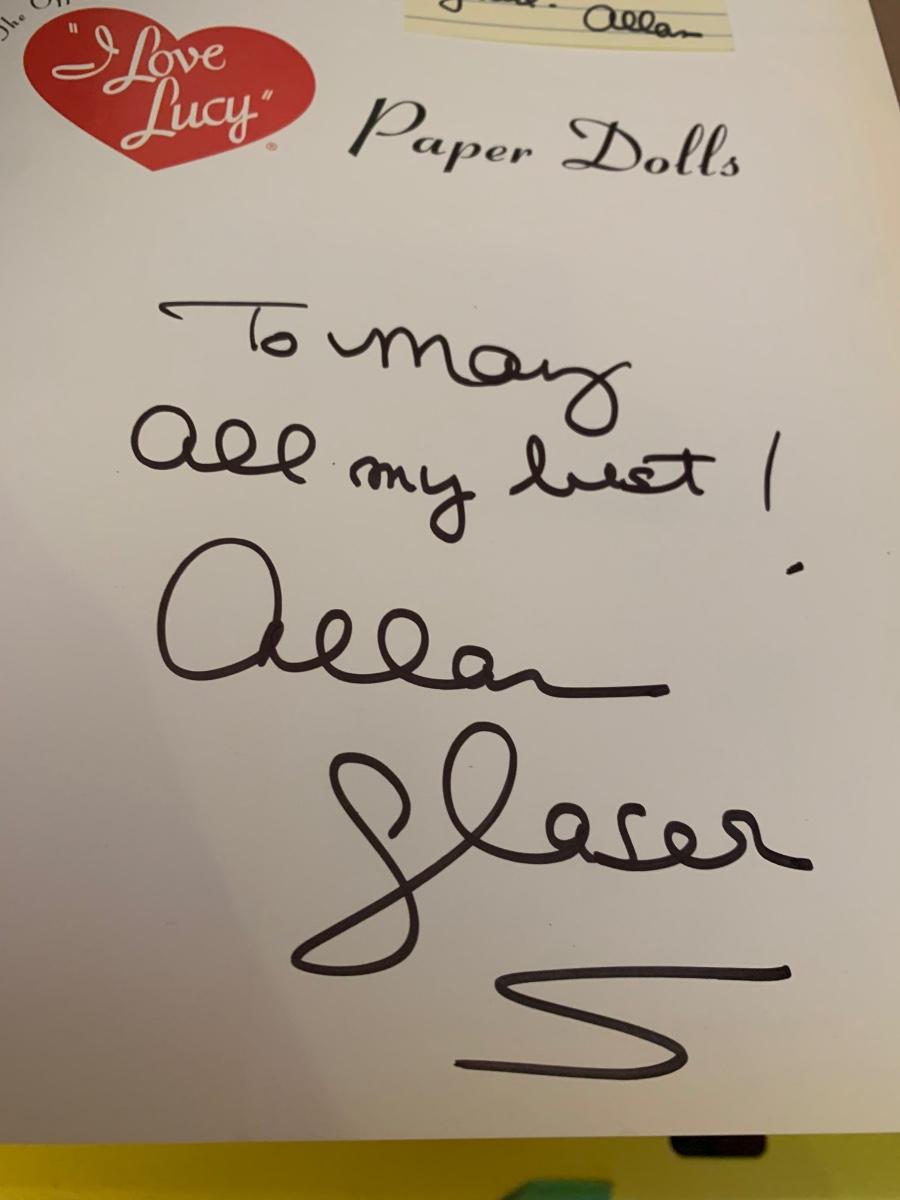 The
Allan
"I Love
Lucy"®
Paper Dolls
To Mary
All my best!
Allan
Glaser